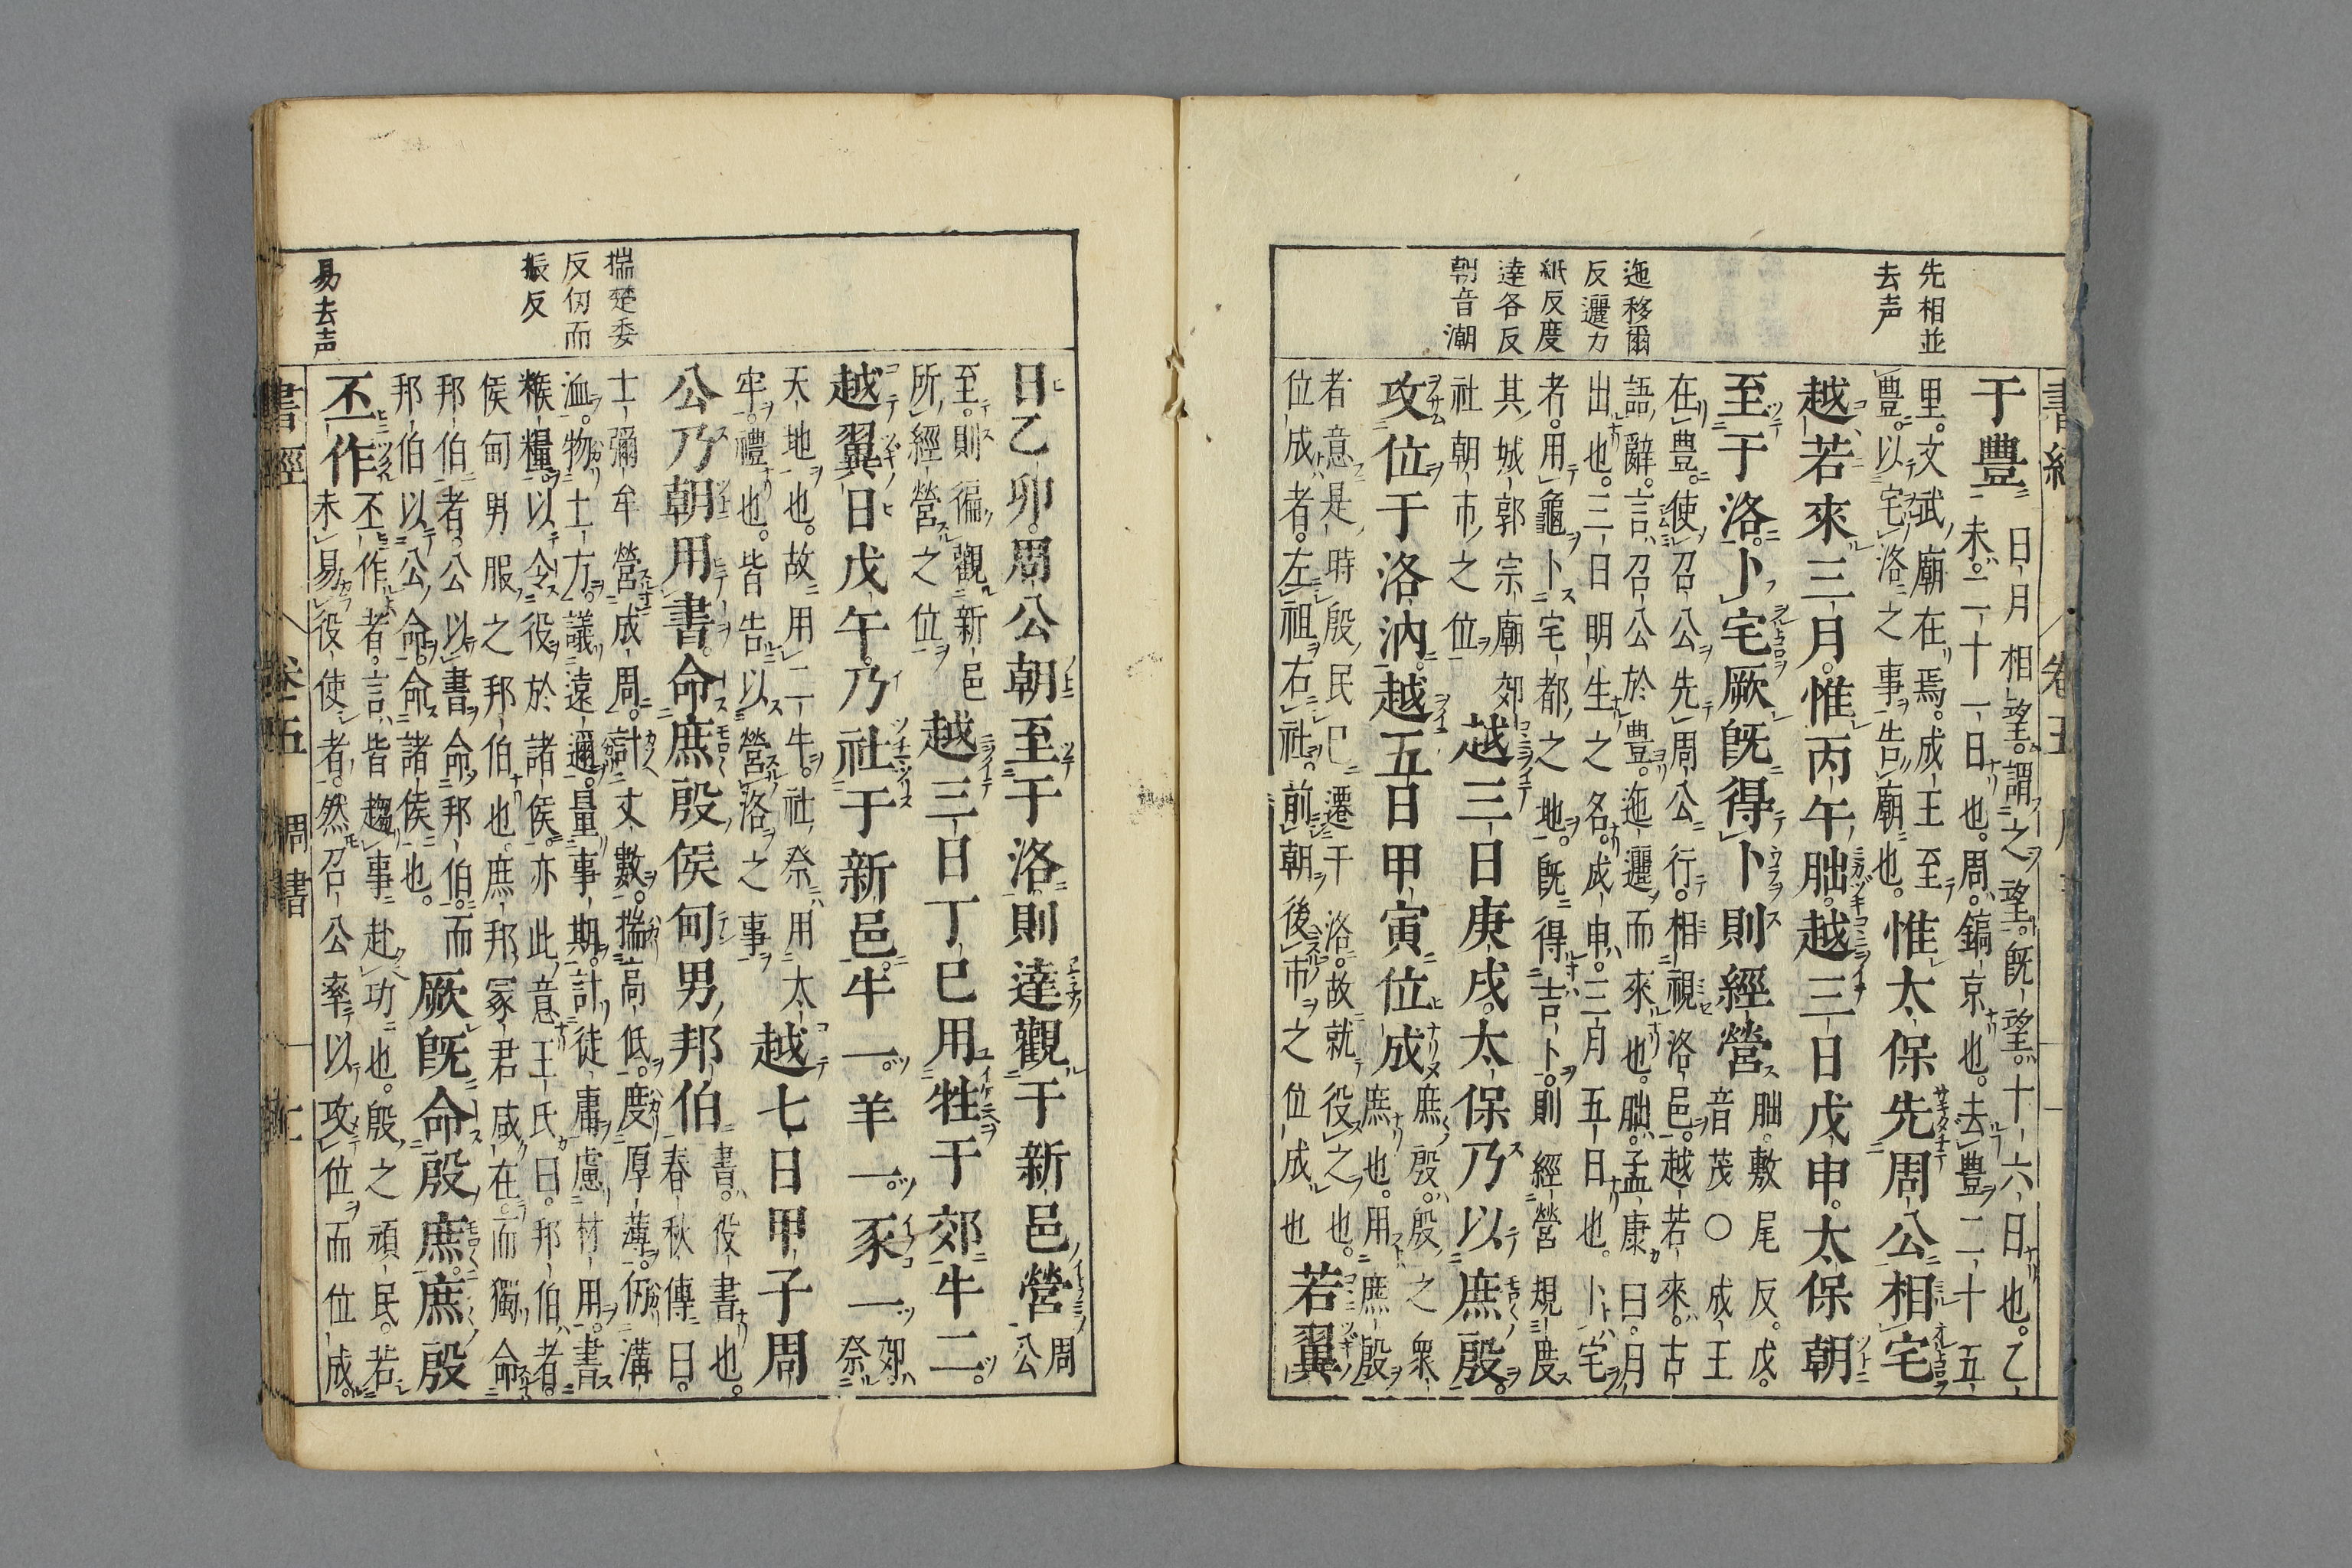 先相並
去声
迤移爾
反邐力
紙反度
達各反
朝音潮
于豐
日月相望。謂之望。既望。十六日也。乙
未。二十一日也。周。鎬京也。去豐二十五
里。文武廟在焉。成王至
豐。以宅洛之事告廟也。
惟太保先周公相宅
越若來三月。惟丙午朏。越三日戊申。太保朝
至于洛。卜宅厥既得卜則經營
朏。敷尾反。戊。
音茂○成王
在豐。使召公先周公行。相視洛邑。越若來。古
語辭。言召公於豐。迤邐而來也。朏。孟康曰。月
出也。三日明生之名。戊申。三月五日也。卜宅
者。用龜卜宅都之地。既得吉卜。則經營規度
其城郭宗廟郊
社朝市之位
越三日庚戌。太保乃以庶殷。
攻位于洛汭。越五日甲寅位成
庶殷。殷之衆
庶也。用庶殷
者意是時殷民已遷于洛。故就役之也。
位成者。左祖右社。前朝後市之位成也
若翼
日乙卯。周公朝至于洛。則達觀于新邑營
周
公
至。則徧觀新邑
所經營之位
越三日丁巳用牲于郊牛二。
越翼日戊午。乃社于新邑。牛一。羊一。豕一
郊
祭
天地也。故用二牛。社祭用太
牢。禮也。皆告以營洛之事
越七日甲子周
公乃朝用書。命庶殷侯甸男邦伯
書。役書也。
春秋傳曰。
士彌牟營成周。計丈數。揣高低。度厚薄。仞溝
洫。物土方。議遠邇。量事期。計徒庸慮材用。書
糇糧。以令役於諸侯。亦此意。王氏曰。邦伯者。
侯甸男服之邦伯也。庶邦冢君咸在。而獨命
邦伯者。公以書命邦伯。而
邦伯以公命命諸侯也。
厥既命殷庶。庶殷
丕作
丕作者。言皆趨事赴功也。殷之頑民。若
未易役使者。然召公率以攻位而位成。
揣楚委
反仞而
振反
易去声
書經 卷五 周書